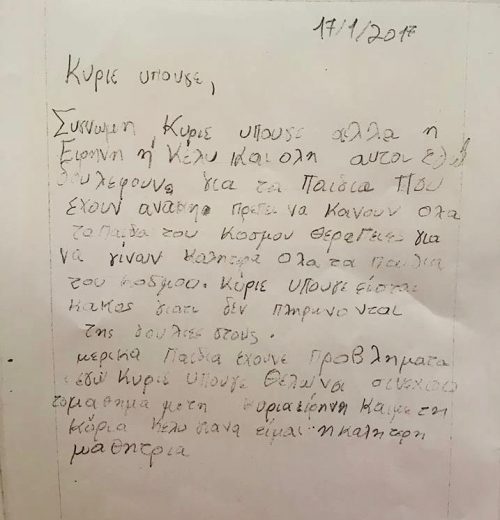 17/1/2017
Κυριε υπουγε,
Συγνωμη Κυριε υπουγε αλλα η
Ειρηνη η Κελυ και ολη αυτοι εδω
δουλεφουνε για τα Παιδια που
εχουν αναγκη πρεπει να κανουν ολα
τα παιδια του Κοσμου θεραπειες για
να γίναν καλητερα ολα τα παιδια
του κοσμου. Κυριε υπουγε εισται
κακος γιατι δεν πληρωνονται
της δουλιες στους.
μερικα Παιδια έχουνε προβληματα
εγώ Κυριε υπουγε Θελω να συνεχισω
το μαθημα με τη κυρια ειρήνη και με τη
Κύρια Κελυ για να είμαι η καλητερη
μαθητρια